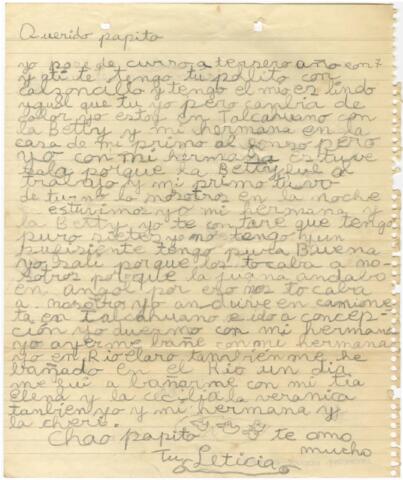 Querido papito
yo pase de curso a tersero año con 7
y a ti te tengo tu polito con
calsoncillo y tengo el mio es lindo
ygual que tu yo pero cambia de
color yo estoy en Talcahuano con
la Betty y mi hermana en la
casa de mi primo alfonso pero
yo con mi hermana estuve
sola porque la Betty fue a
trabajo y mi primo tuvo
de turno la nosotros en la noche
estuvimos yo mi hermana y
la Betty yo te contare que tengo
puro sietes yo no tengo y un
tengo pura Buena
porque los tocaba a no
sotros porque la juana andaba
en angol por eso nos tocaba
a nosotro yo anduve en camione
ta en Talcahuano e ido a concep
ción yo duermo con mi hermana
yo ayer me bañe con mi hermana
yo en Rio claro tambien me he
bañado en el Rio un dia
me fui a bañarme con mi tia
elena y la cecilia la veranica
tanbien yo y mi hermana y
la chere.
Chao papito te amo
mucho
Tu Leticia